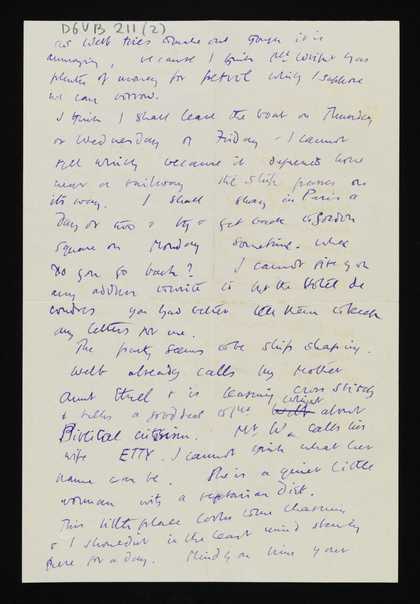 D6VB 211 (2)
as Webb tries to make out though it is
annoying, because I think Mr. Wright has
plenty of money for petrol which I suppose
we can borrow.
I think I shall leave the boat on Thursday
or Wednesday or Friday - I cannot
tell which because it depends how
near a railway the ship passes on
its way. I shall stay in Paris a
day or two & try & get back to Gordon
Square on Monday sometime. When
do you go back? I cannot give you
any address to write to but the Hotel de
Londres you had better tell them to keep
any letters for me.
The party seems to be ship shaping.
Webb already calls my Mother
Aunt & is learning cross stitch
& talks a good deal to Mr Wright about
Biblical criticism. Mr. W. calls his
wife ETTY. I cannot think what her
name can be. She is a quiet little
woman with a vegetarian diet.
This little place looks charming
& I shouldn't in the least mind staying
here for a day. Mind you have your